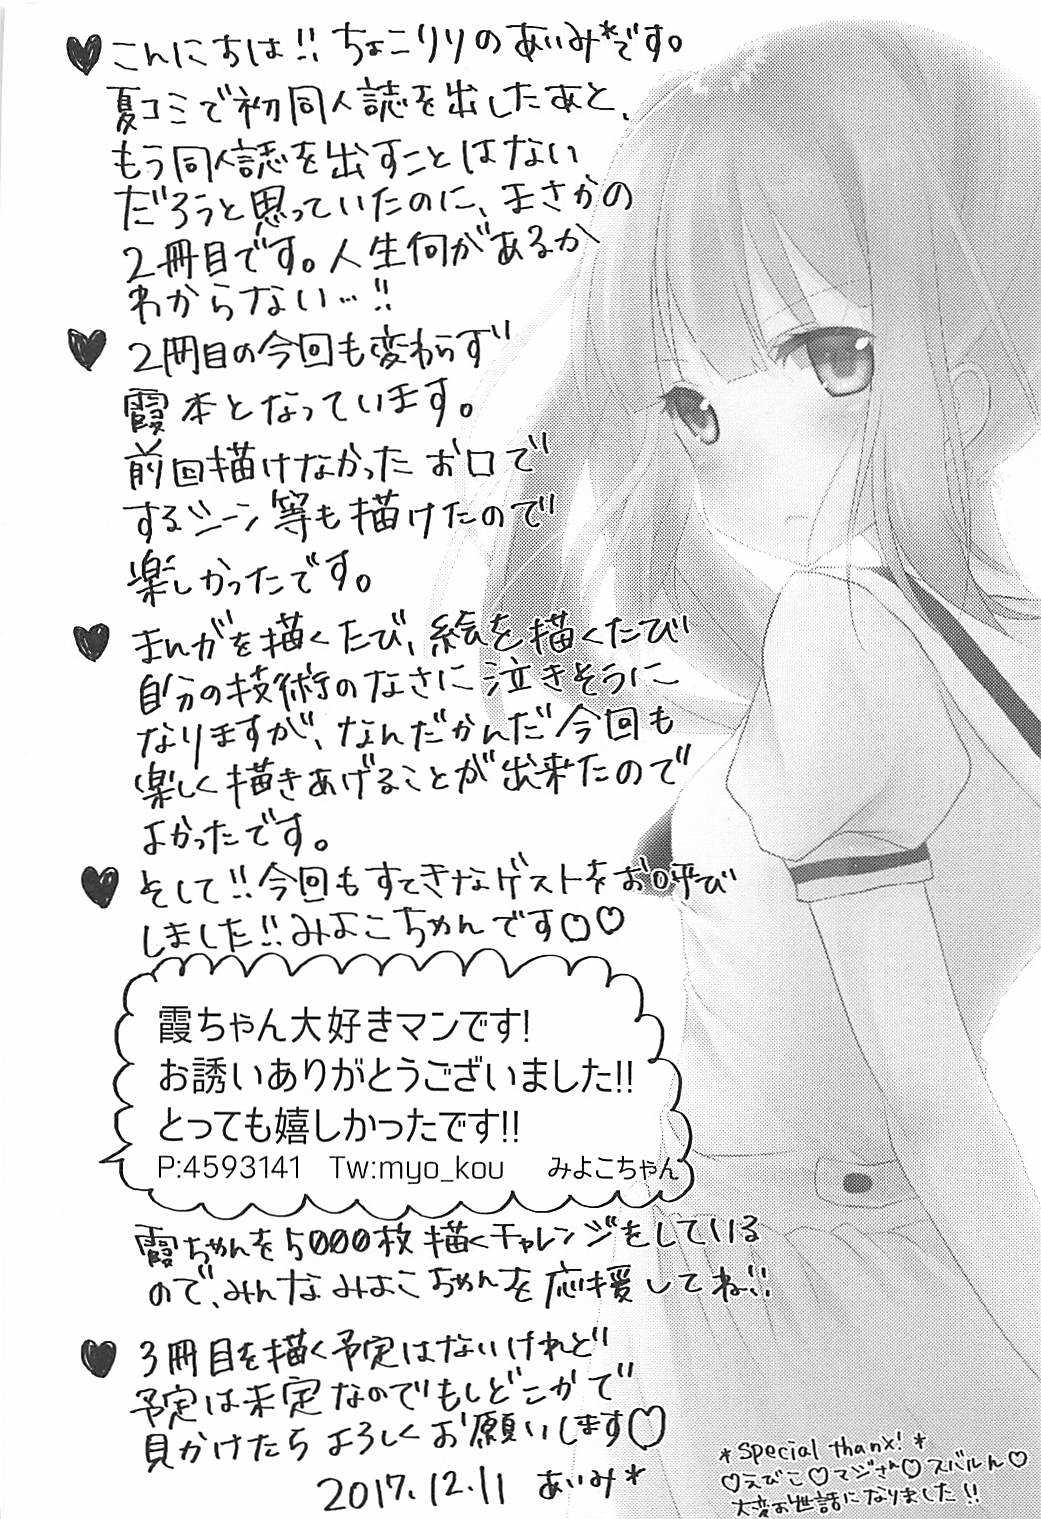 ♥ こんにちは!! ちょこりりのあいみ*です。
夏コミで初同人誌を出したあと、
もう同人誌を出すことはない
だろうと思っていたのに、まさかの
2冊目です。人生何があるか
わからない…!!
♥ 2冊目の今回も変わらず
霞本となっています。
前回描けなかったお口で
するシーン等も描けたので
楽しかったです。
♥ まんがを描くたび、絵を描くたび
自分の技術のなさに泣きそうに
なりますが、なんだかんだ今回も
楽しく描きあげることが出来たので
よかったです。
♥ そして!! 今回もすてきなゲストをお呼び
しました!! みよこちゃんです♡♡
霞ちゃん大好きマンです!
お誘いありがとうございました!!
とっても嬉しかったです!!
P:4593141 Tw:myo_kou みよこちゃん
霞ちゃんを5000枚描くチャレンジをしている
ので、みんなみよこちゃんを応援してね!!
♥ 3冊目を描く予定はないけれど
予定は未定なのでもしどこかで
見かけたらよろしくお願いします♡
2017.12.11 あいみ*
*Special thanx!*
♡えびこ♡マジさん♡スバルん♡
大変お世話になりました!!